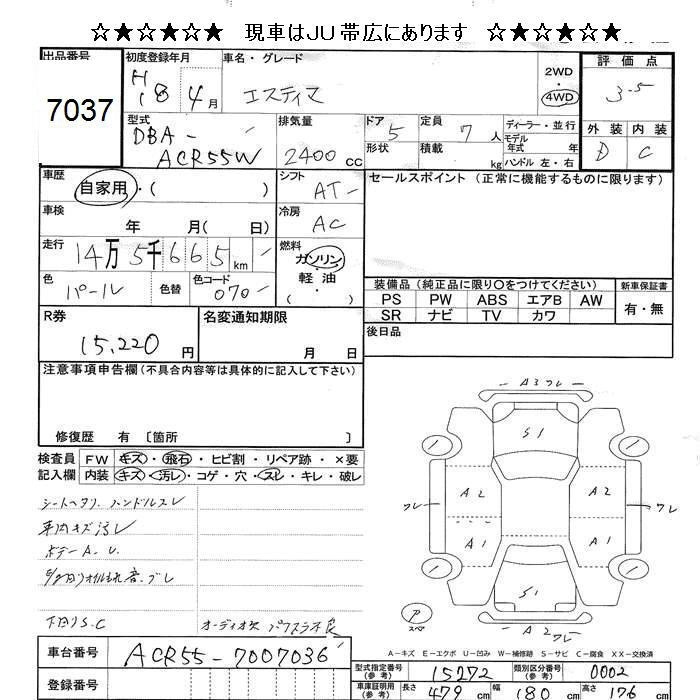 ☆★☆★☆★ 現車はJU帯広にあります ☆★☆★☆★
出品番号 7037
初度登録年月 H18年 4月
車名・グレード エスティマ
2WD 4WD
評価点 3.5
型式 DBA- ACR55W
排気量 2400cc
ドア 5 形状
定員 7人 積載 kg
ディーラー・並行
モデル年式 年
ハンドル 左・右
外装 D 内装 C
車歴 自家用・( )
シフト AT
セールスポイント (正常に機能するものに限ります)
車検 年 月( 日)
冷房 AC
走行 14万5千665km
燃料 ガソリン・軽油
色 パール 色替 色コード 070
装備品 (純正品に限り○をつけてください) 新車保証書
PS PW ABS エアB AW 有・無
SR ナビ TV カワ
R券 15,220円
名変通知期限 月 日
後日品
注意事項申告欄 (不具合内容等は具体的に記入して下さい)
修復歴 有 〔箇所 〕
検査員記入欄 FW キズ・飛石・ヒビ割・リペア跡・×要
内装 キズ・汚レ・コゲ・穴・スレ・キレ・破レ
シートヘタリ ハンドルスレ
車内キズ汚レ
ボデーA.U.
下回りS.C
A3ワレ
S1
A2 A2
ワレ ワレ
A1 A1
S1
A2ワレ
P スペア
A-キズ E-エクボ U-凹み W-補修跡 S-サビ C-腐食 XX-交換済
車台番号 ACR55-7007036
登録番号
型式指定番号(参考) 15272 類別区分番号(参考) 0002
車庫証明用(参考) 長さ 479cm 幅 180cm 高さ 176cm